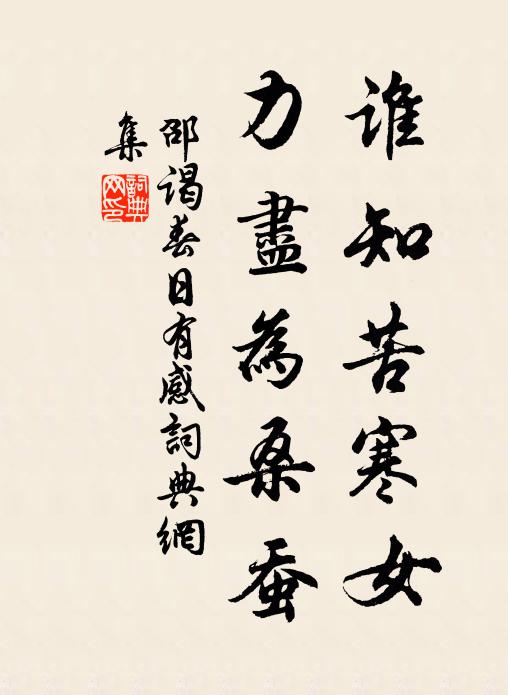 誰知苦寒女
力盡為桑蚕
邵謁春日有感詞典網
集
詞典網印